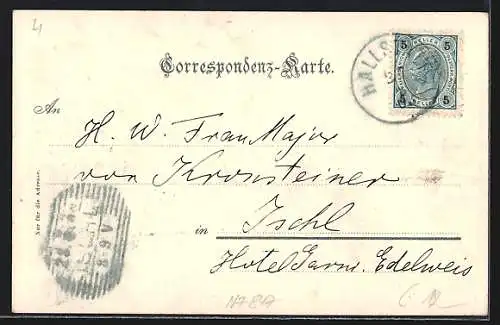 4
Correspondenz-Karte.
HALLS
5 HELLER 5
5 HELLER 5
An
H. W. Frau Major
von Kronsteiner
in Ischl
Hotel Garni. Edelweis
Nur für die Adresse.
ISCHL